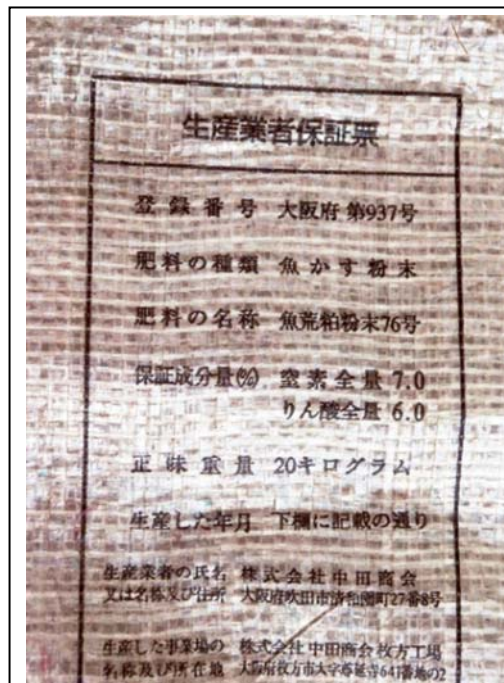 生産業者保証票
登録番号 大阪府 第937号
肥料の種類 魚かす粉末
肥料の名称 魚荒粕粉末76号
保証成分量(%) 窒素全量 7.0
りん酸全量 6.0
正味重量 20キログラム
生産した年月 下欄に記載の通り
生産業者の氏名 株式会社中田商会
又は名称及び住所 大阪府吹田市清和園町27番8号
生産した事業場の 株式会社 中田商会 枚方工場
名称及び所在地 大阪府枚方市大字尊延寺641番地の2